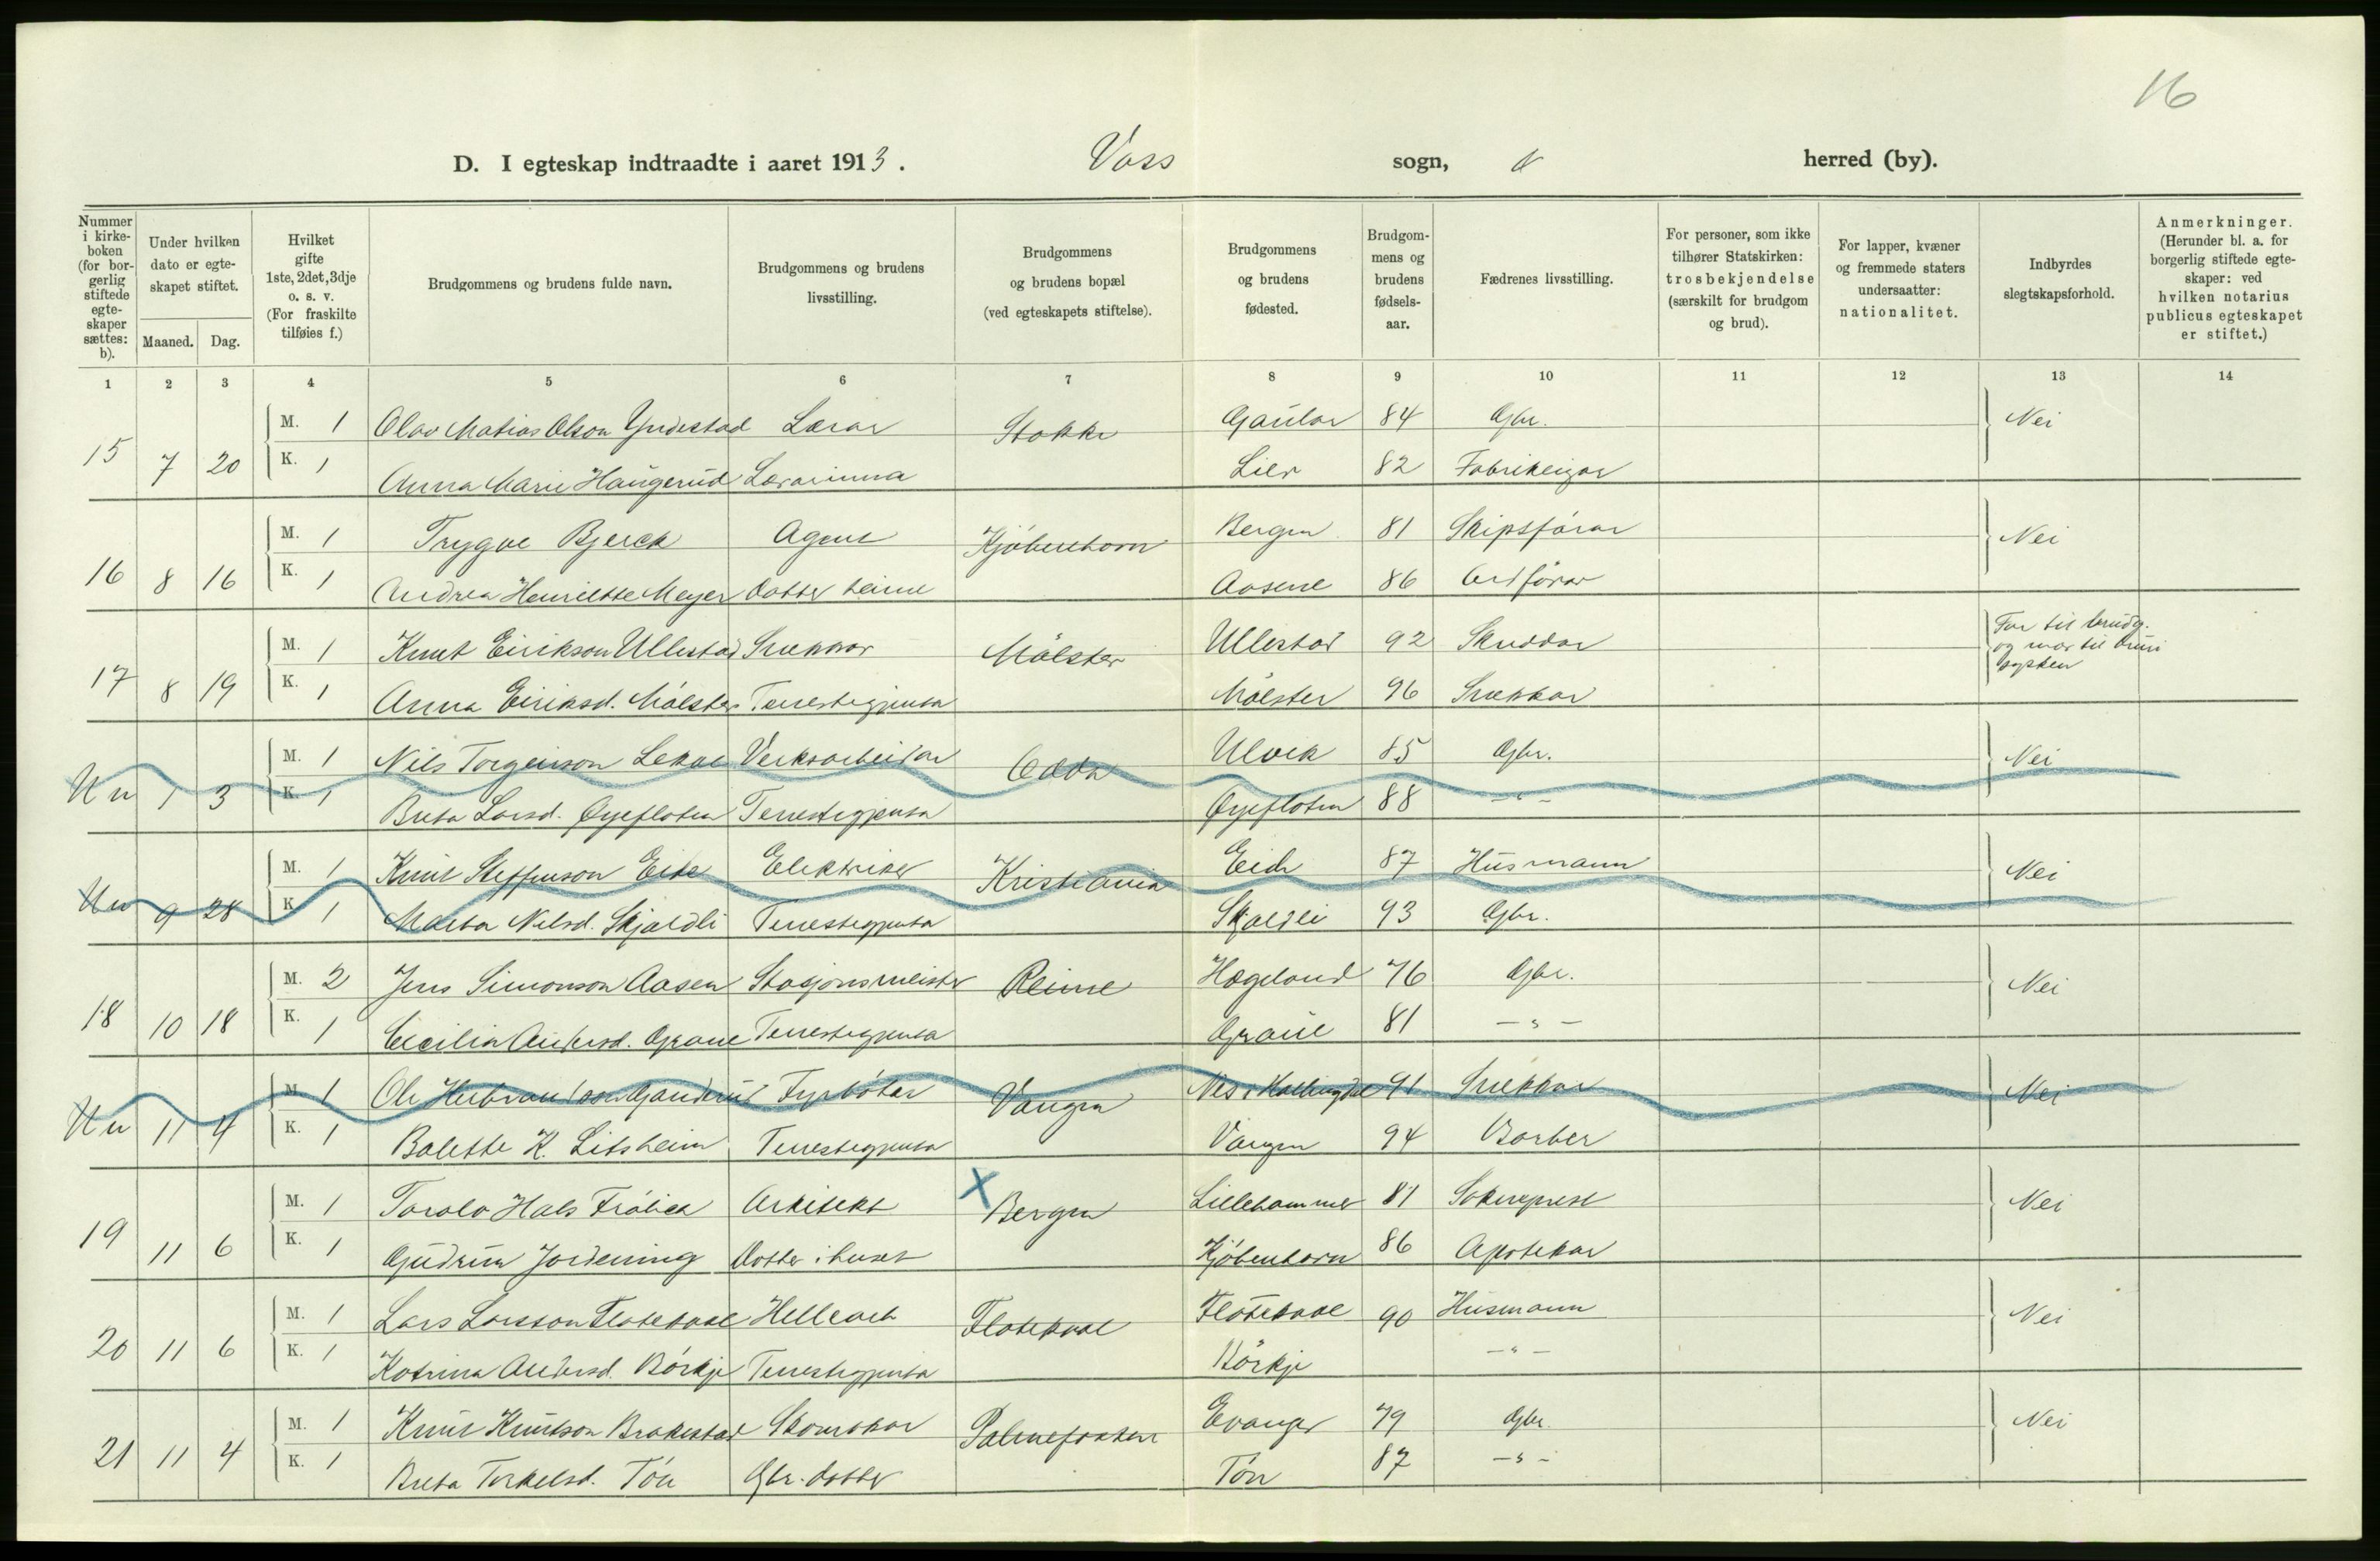 16
D. I egteskap indtraadte i aaret 1913. Voss sogn, herred (by).
Nummer i kirkeboken (for borgerlig stiftede egteskaper sættes: b).
Under hvilken dato er egteskapet stiftet.
Maaned. Dag.
Hvilket gifte 1ste, 2det, 3dje o. s. v. (For fraskilte tilføies f.)
Brudgommens og brudens fulde navn.
Brudgommens og brudens livsstilling.
Brudgommens og brudens bopæl (ved egteskapets stiftelse).
Brudgommens og brudens fødested.
Brudgommens og brudens fødselsaar.
Fædrenes livsstilling.
For personer, som ikke tilhører Statskirken: trosbekjendelse (særskilt for brudgom og brud).
For lapper, kvæner og fremmede staters undersaatter: nationalitet.
Indbyrdes slegtskapsforhold.
Anmerkninger. (Herunder bl. a. for borgerlig stiftede egteskaper: ved hvilken notarius publicus egteskapet er stiftet.)
1 2 3 4 5 6 7 8 9 10 11 12 13 14
M. 1 Olav Matias Olson Yndestad Lærar Stokke Gaular 84 Gbr. Nei
15 7 20 K. 1 Anna Marie Haugerud Lærarinna Lier 82 Fabrikeigar
M. 1 Trygve Bjerck Agent Kjöbenhavn Bergen 81 Skipsförar Nei
16 8 16 K. 1 Andrea Henriette Meyer Dotter heime Aasene 86
M. 1 Knut Eirikson Ullestad Snekkar Mölster Ullestad 92 Skreddar Far til brudg. og mor til brur sysken
17 8 19 K. 1 Anna Eiriksd. Mölster Tenestegjenta Mölster 96 Snekkar
M. 1 Nils Torgeirson Lekve Verksarbeidar Odda Ulvik 85 Gbr. Nei
Un 1 3 K. 1 Brita Larsd. Øyeflaten Tenestegjenta Øyeflaten 88 - " -
M. 1 Knut Steffenson Eide Elektriker Kristiania Eide 87 Husmann Nei
Un 9 28 K. 1 Marta Nilsd. Skjældli Tenestegjenta 93 Gbr.
M. 2 Jens Simonson Aasen Stasjonsmeister Reime Hægeland 76 Gbr. Nei
18 10 18 K. 1 Cecilia Andersd. Grane Tenestegjenta Grane 81 - " -
M. 1 Ole Fyrbötar Vangen Nes i Hallingdal 91 Snekkar Nei
Un 11 4 K. 1 Bolette K. Litsheim Tenestegjenta Vangen 94 Barber
M. 1 Torolv Hals Frölich Arkitekt X Bergen Lillehammer 81 Sokneprest Nei
19 11 6 K. 1 Gudrun Jordening Dotter i huset Kjöbenhavn 86 Apotekar
M. 1 Lars Larsson Flatekvål Flatekvål Flatekvål 90 Husmann Nei
20 11 6 K. 1 Katrina Andersd. Börkje Tenestegjenta Börkje - " -
M. 1 Knut Knutson Brakestad Skomakar Palmefossen Evanger 79 Gbr. Nei
21 11 4 K. 1 Brita Torkelsd. Tön Gbr. dotter Tön 87 - " -